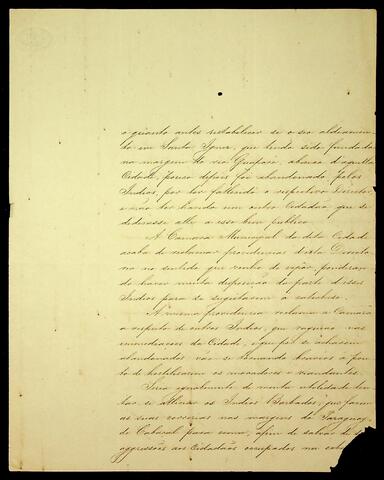 o quanto antes restabelecer se o seo aldeamen-
to em Santa Ignez, que tendo sido fundado
na margem do rio Guaporé, abaixo d'aquella
Cidade, pouco depois foi abandonado pelos
Indios, por ter fallecido o respectivo Director
e não ter havido um outro Cidadão que se
dedicasse alli a esse bem publico.
A Camara Municipal da dita Cidade
acaba de reclamar providencias d'esta Directo-
ria no sentido que venho de expôr, ponderan-
do haver muita disposição da parte d'esses
Indios para se sugeitarem a
A mesma providencia reclama a Camara
a respeito de outros Indios, que vagueão nas
immediações da Cidade, e que por se acharem
abandonados vão se tornando bravios a pon-
to de hostilisarem os moradores e viandantes.
Seria igualmente de muita utilidade ten-
tar se alliciar os Indios "Barbados", que fazem
as suas correrias nas margens do Paraguay,
do Cabaçal para cima, afim de salvar de
aggressões aos Cidadãos occupados na